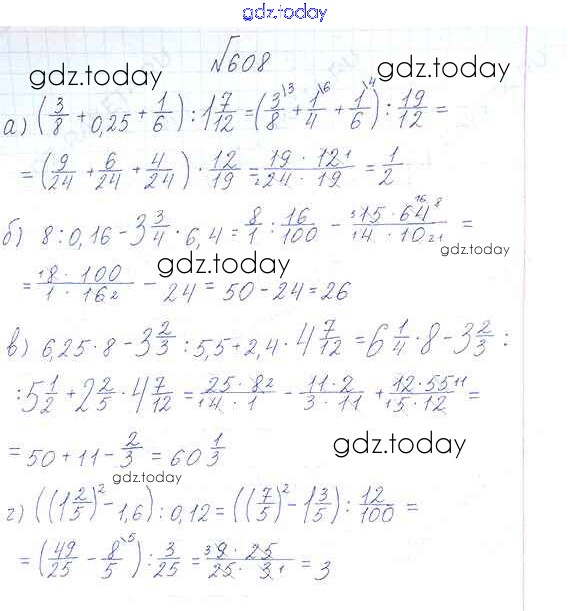 gdz.today
№608
gdz.today
gdz.today
а) (3/8 + 0,25 + 1/6) : 1 7/12 = (3/8 \3 + 1/4 \6 + 1/6 \4) : 19/12 =
= (9/24 + 6/24 + 4/24) · 12/19 = 19 · 12 1 / 2 24 · 19 = 1/2
б) 8 : 0,16 - 3 3/4 · 6,4 = 8/1 : 16/100 - 3 15 · 64 16 8 / 1 4 · 10 2 1 =
gdz.today
gdz.today
= 1 8 · 100 / 1 · 16 2 - 24 = 50 - 24 = 26
в) 6,25 · 8 - 3 2/3 : 5,5 + 2,4 · 4 7/12 = 6 1/4 · 8 - 3 2/3 :
: 5 1/2 + 2 2/5 · 4 7/12 = 25 · 8 2 / 1 4 · 1 - 11 · 2 / 3 · 11 + 12 · 55 11 / 1 5 · 12 =
= 50 + 11 - 2/3 = 60 1/3
gdz.today
gdz.today
г) ((1 2/5)² - 1,6) : 0,12 = ((7/5)² - 1 3/5) : 12/100 =
= (49/25 - 8/5 \5) : 3/25 = 3 9 · 25 / 25 · 3 1 = 3